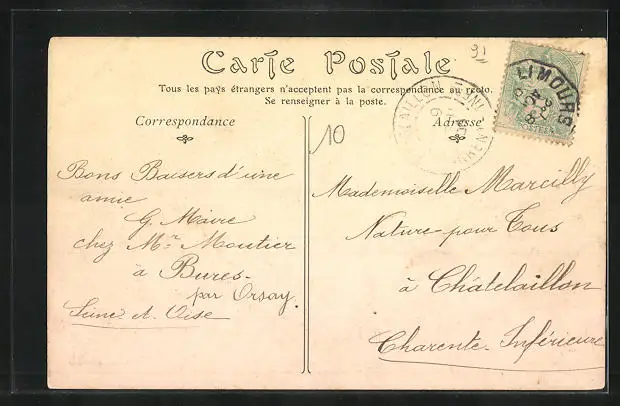 Carte Postale
Tous les pays étrangers n'acceptent pas la correspondance au recto.
Se renseigner à la poste.
Correspondance
Adresse
91
10
LIMOURS
POSTES
Bons Baisers d'une
amie
G. Maire
chez Mr Moutier
à Bures-
par Orsay
Seine et Oise
Mademoiselle Marcilly
Nature pour Tous
à Châtelaillon
Charente-Inférieure